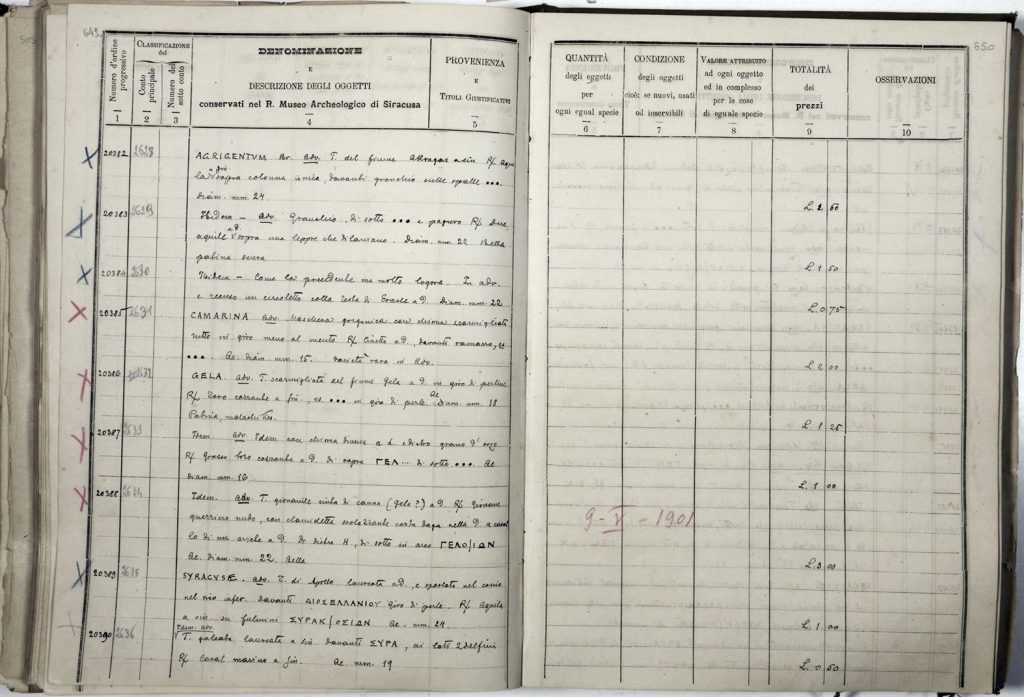 649.
Numero d'ordine progressivo
Classificazione del
Conto principale
Numero del sotto conto
DENOMINAZIONE
E
DESCRIZIONE DEGLI OGGETTI
conservati nel R. Museo Archeologico di Siracusa
PROVENIENZA
E
Titoli Giustificativi
1 2 3 4 5
20382 2628 AGRIGENTUM Br. adv. T. del fiume Akragas a sin R/ Aqui
la a D. sopra colonna ionica, davanti granchio sulle spalle •••
Diam. mm. 24.
20383 2629 Ibidem – adv. Granchio, di sotto ••• e papero R/ Due
aquile a D. sopra una lepre che dilaniano. Diam. mm. 22 Bella
patina scura
20384 2630 Ibidem – Come la precedente ma molto logora. In adv.
e recuso un circoletto colla testa di Eracle a D. Diam. mm. 22
20385 2631 CAMARINA adv. Maschera gorgonica con chioma scarmigliata
tutto in giro meno al mento R/ Civetta a D., davanti ramarro, es
••• Ae. diam mm. 15. Varietà rara in adv.
20386 2632 GELA. adv. T. scarmigliata del fiume Gela a D. in giro di perline
R/ Toro cozzante a sin, es. ••• in giro di perle Ae Diam. mm. 18
Patina, malachites.
20387 2633 Idem adv. Idem con chioma a d. e dietro grano d'orzo
R/ Grosso toro cozzante a D. di sopra ΓΕΛ... di sotto ••• Ae
diam. mm. 16
20388 2634 Idem. adv. T. giovanile cinta di canna (Gela?) a D R/ Giovane
guerriero nudo, con clamidetta svolazzante nella D. a caval
lo di un ariete a D. Di dietro H, di sotto in arco ΓΕΛΟ/ΙΩΝ
Ae. diam. mm. 22. Bella
20389 2635 SYRACUSÆ. adv. T. di Apollo laureata a D. e spostato nel conio
nel mio infer. davanti ΔΙΟΣΕΛΛΑΝΙΟΥ giro di perle. R/ Aquila
a sin. su fulmini ΣΥΡΑΚ/ΟΣΙΩΝ Ae. mm. 24.
20390 2636 Idem. adv.
T. galeata, laureata a sin davanti ΣΥΡΑ, ai lati 2 delfini
R/ Caval marino a sin. Ae mm. 19
650
QUANTITÀ
degli oggetti
per
ogni egual specie
CONDIZIONE
degli oggetti
cioè: se nuovi, usati
od inservibili
Valore attribuito
ad ogni oggetto
ed in complesso
per le cose
di eguale specie
TOTALITÀ
dei
prezzi
OSSERVAZIONI
6 7 8 9 10
L. 2 50
L. 1 50
L. 0 75
L. 2 00
L. 1 25
L. 1 00
9-V-1901
L. 3 00
L. 1 00
L. 0 50